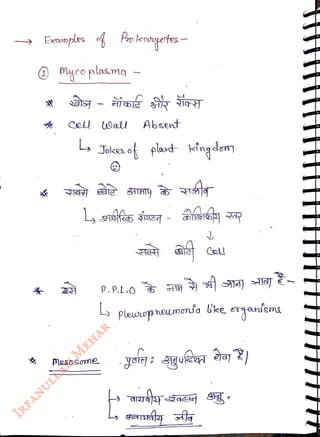 → Examples of Prokaryotes -
① Mycoplasma -
* खोज - नॉकार्ड और रॉक्स
* Cell Wall Absent
↳ Joker of plant kingdom
* सबसे छोटे आकार के सजीव
↳ शारीरिक संगठन - कोशिकीय स्तर
↓
सबसे छोटी Cell
* इसे P.P.L.O के नाम से भी जाना जाता है -
↳ pleuropneumonia like organisms
* Mesosome पूर्णतः अनुपस्थित होता है।
→ वायवीय श्वसन हेतु।
→ अवायवीय जीव
IRFANULLAH MEHAR